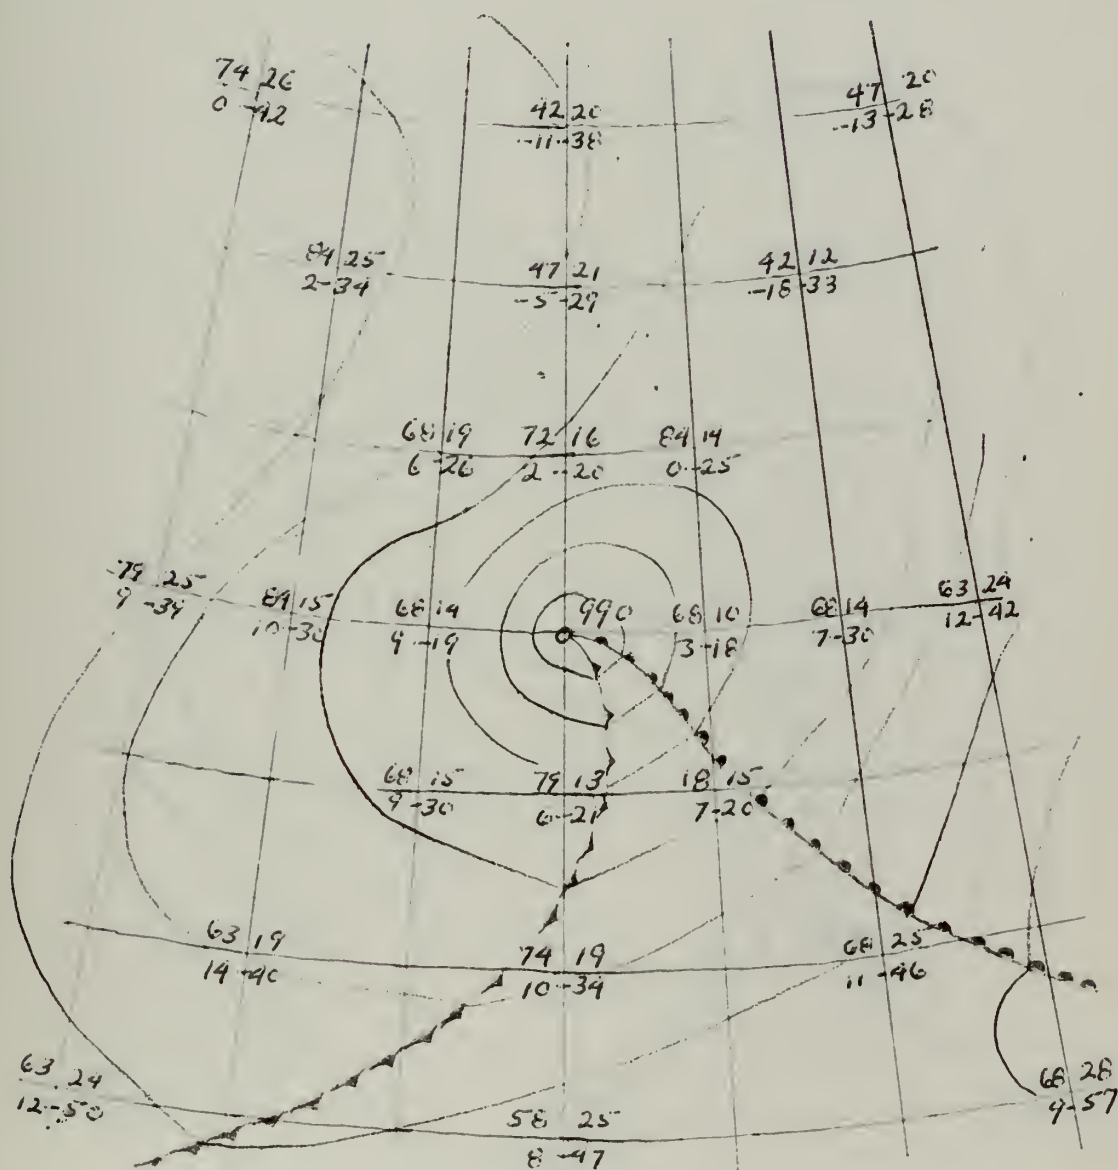 74 26
0 -42
42 20
-11 -38
47 20
-13 -28
84 25
2 -34
47 21
-5 -29
42 12
-18 -33
68 19
6 -26
72 16
2 -20
84 14
0 -25
79 25
9 -39
84 15
10 -30
68 14
9 -19
990
68 10
3 -18
68 14
7 -30
63 24
12 -42
68 15
9 -30
79 13
6 -21
18 15
7 -20
63 19
14 -40
74 19
10 -34
68 25
11 -46
63 24
12 -50
58 25
8 -47
68 28
9 -57